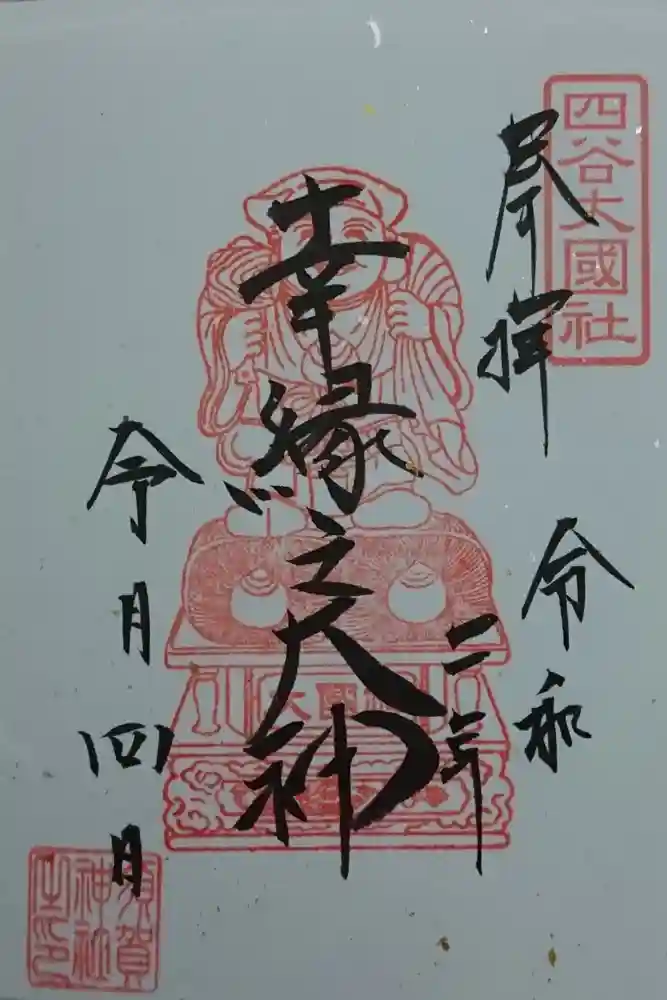 四谷大國社
奉拝
令和
二年
幸縁之大神
令月四日
須賀
神社
之印